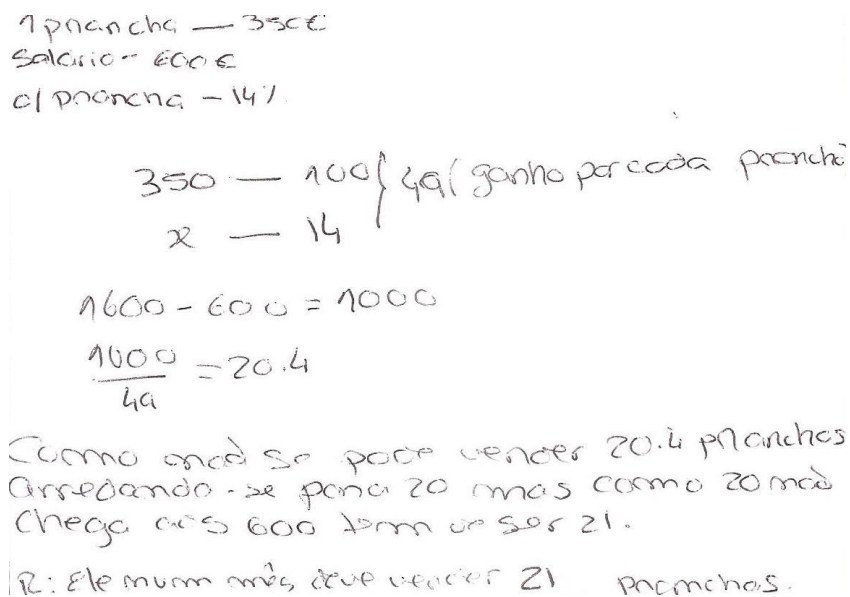 1 prancha — 350€
Salário - 600€
c/ prancha - 14%
350 — 100 } 49 ( ganho por cada prancha
x — 14
1600 - 600 = 1000
1000
49
= 20.4
Como não se pode vender 20.4 pranchas
arredonda-se para 20 mas como 20 não
chega aos 600 tem de ser 21.
R: Ele num mês, deve vender 21 pranchas.